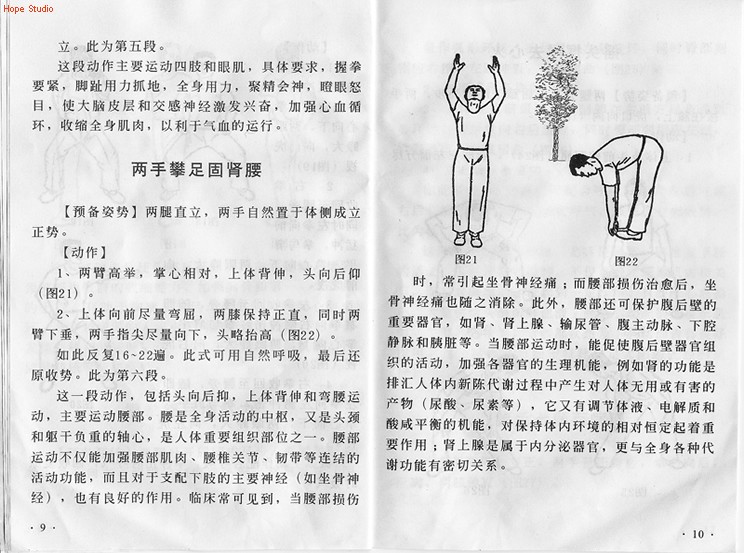 Hope Studio
立。此为第五段。
这段动作主要运动四肢和眼肌，具体要求，握拳
要紧，脚趾用力抓地，全身用力，聚精会神，瞪眼怒
目，使大脑皮层和交感神经激发兴奋，加强心血循
环，收缩全身肌肉，以利于气血的运行。
两手攀足固肾腰
【预备姿势】两腿直立，两手自然置于体侧成立
正势。
【动作】
1、两臂高举，掌心相对，上体背伸，头向后仰
（图21）。
2、上体向前尽量弯屈，两膝保持正直，同时两
臂下垂，两手指尖尽量向下，头略抬高（图22）。
如此反复16~22遍。此式可用自然呼吸，最后还
原收势。此为第六段。
这一段动作，包括头向后抑，上体背伸和弯腰运
动，主要运动腰部。腰是全身活动的中枢，又是头颈
和躯干负重的轴心，是人体重要组织部位之一。腰部
运动不仅能加强腰部肌肉、腰椎关节、韧带等连结的
活动功能，而且对于支配下肢的主要神经（如坐骨神
经），也有良好的作用。临床常可见到，当腰部损伤
· 9 ·
图21
图22
时，常引起坐骨神经痛；而腰部损伤治愈后，坐
骨神经痛也随之消除。此外，腰部还可保护腹后壁的
重要器官，如肾、肾上腺、输尿管、腹主动脉、下腔
静脉和胰脏等。当腰部运动时，能促使腹后壁器官组
织的活动，加强各器官的生理机能，例如肾的功能是
排汇人体内新陈代谢过程中产生对人体无用或有害的
产物（尿酸、尿素等），它又有调节体液、电解质和
酸咸平衡的机能，对保持体内环境的相对恒定起着重
要作用；肾上腺是属于内分泌器官，更与全身各种代
谢功能有密切关系。
· 10 ·